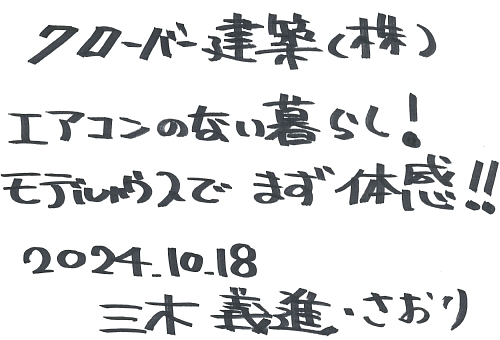 クローバー建築(株)
エアコンのない暮らし!
モデルハウスでまず体感!!
2024.10.18
三木義進・さおり